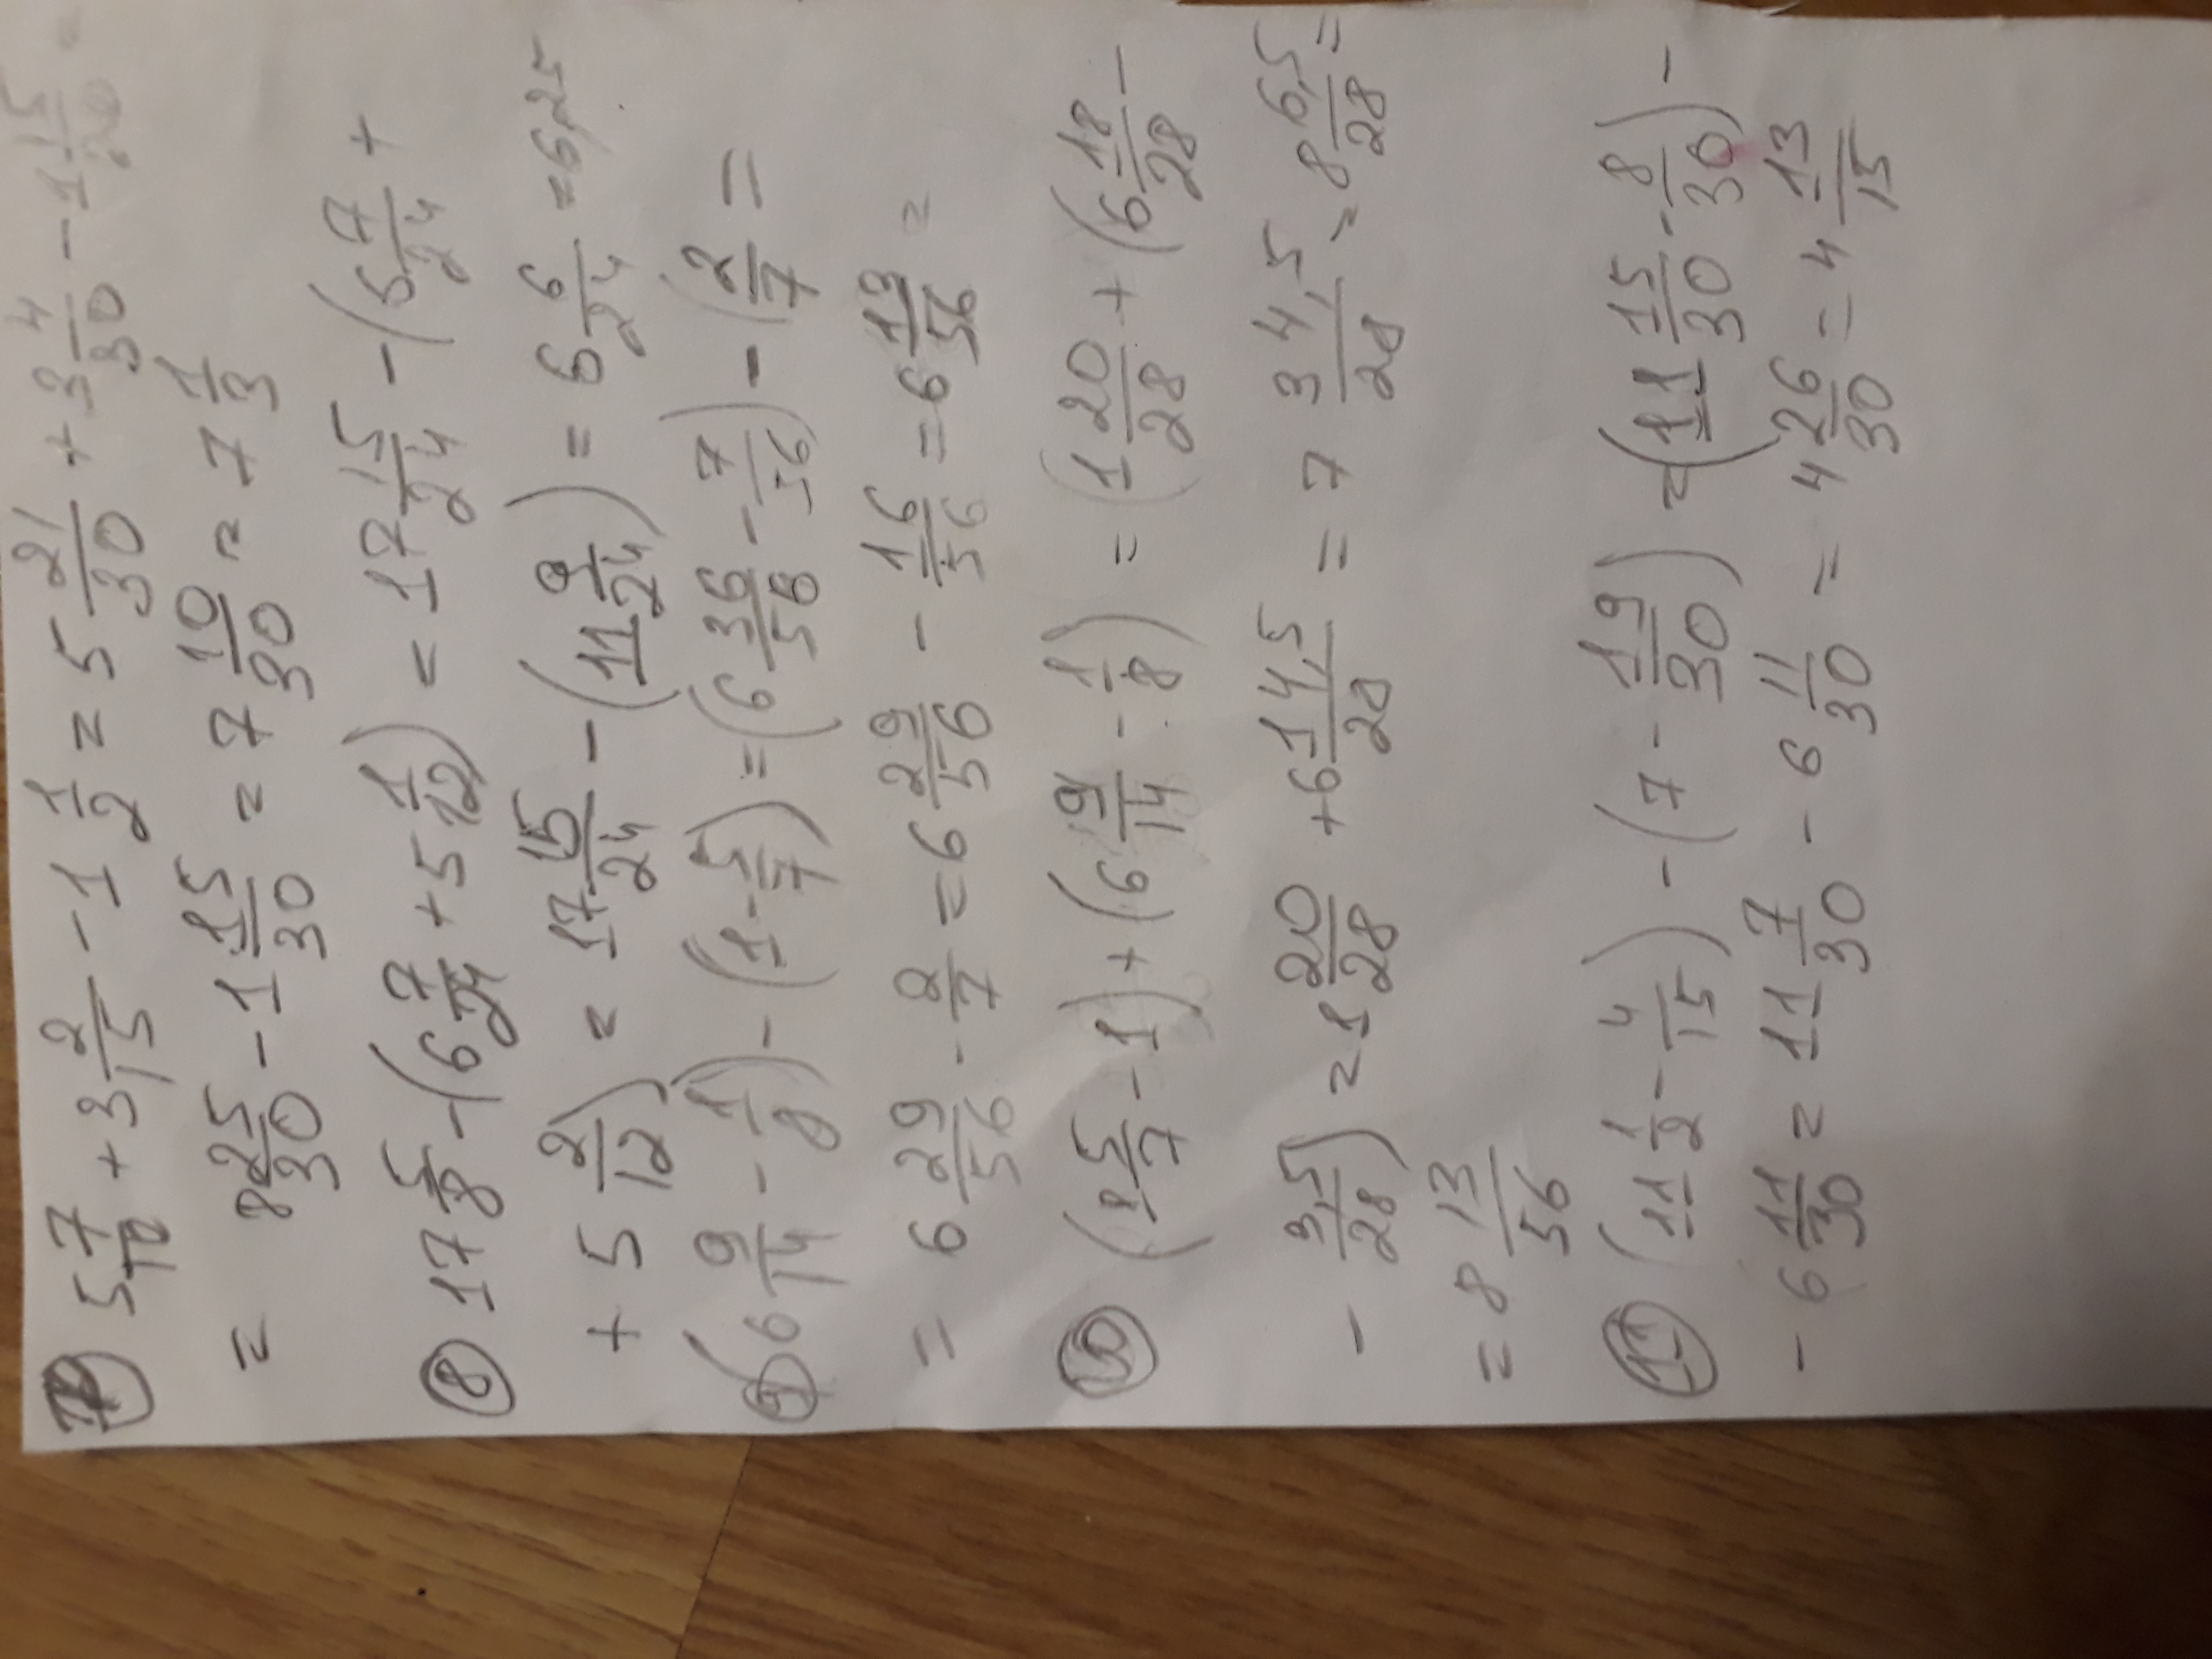 7) 5 7/10 + 3 2/15 - 1 1/2 = 5 21/30 + 3 4/30 - 1 15/20 =
= 8 25/30 - 1 15/30 = 7 10/30 = 7 1/3
8) 17 5/8 - (6 7/24 + 5 1/12) = 17 15/24 - (6 7/24 +
+ 5 2/12) = 17 15/24 - (11 9/24) = 6 6/24 = 6,25
9) (6 9/14 - 1/8) - (1 - 5/7) = (6 36/56 - 7/56) - (2/7 =
= 6 29/56 - 2/7 = 6 29/56 - 16/56 = 6 13/56 =
10) (1 5/7 - 1) + (6 9/14 - 1/8) = (1 20/28 + (6 18/28 -
- 3,5/28) = 1 20/28 + 6 14,5/28 = 7 34,5/28 = 8 6,5/28 =
= 8 13/56
11) (11 1/2 - 4/15) - (7 - 19/30) = (11 15/30 - 8/30) -
- 6 11/30 = 11 7/30 - 6 11/30 = 4 26/30 = 4 13/15